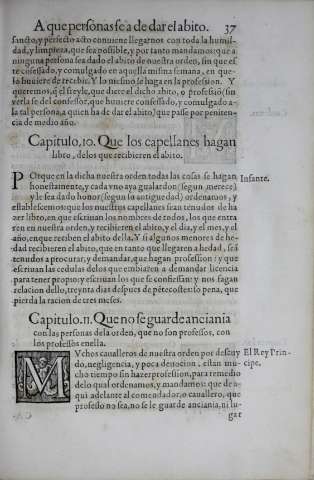 A que personas se a de dar el abito. 37
sancto, y perfecto acto conuiene llegarnos con toda la humil-
dad, y limpieza, que sea posible, y por tanto mandamos: que a
ninguna persona sea dado el abito de nuestra orden, sin que es
te confessado, y comulgado en aquella misma semana, en que
lo huuiere de recebir. Y lo mesmo se haga en la profession. Y
queremos, q̃ el freyle, que diere el dicho abito, o profesiõ (sin
verla fe del confessor, que huuiere confessado, y comulgado a
la tal persona, a quien ha de dar el abito) que passe por peniten-
cia de medio año.
Capitulo. 10. Que los capellanes hagan
libro, delos que recibieren el abito.
Porque en la dicha nuestra orden todas las cosas se hagan
honestamente, y cada vno aya gualardon (segun merece)
y le sea dado honor (segun lo antiguedad) ordenamos, y
establescemos: que los nuestros capellanes sean tenudos de ha
zer libro, en que escriuan los nombres de todos, los que entra
ren en nuestra orden, y recibieren el abito, y el dia, y el mes, y el
año, en que reciben el abito della. Y si algunos menores de he-
dad recibieren el abito, que en tanto que llegaren a hedad, seã
tenudos a procurar, y demandar, que hagan profession: y que
escriuan las cedulas delos que embiaren a demandar licencia
para tener proprio: y escriuan los que se confiessan: y nos fagan
relacion dello, treynta dias despues de pẽtecoste: so pena, que
pierda la racion de tres meses.
Infante.
Capitulo. 11. Que no se guarde anciania
con las personas dela orden, que no son professos, con
los professos enella.
MVchos caualleros de nuestra orden por descuy
do, negligencia, y poca deuocion, estan mu-
cho tiempo sin hazer profession, para remedio
delo qual ordenamos, y mandamos: que de a-
qui adelante al comendador, o cauallero, que
professo no sea, no se le guarde anciania, ni lu-
gar
El Rey Prin-
cipe.